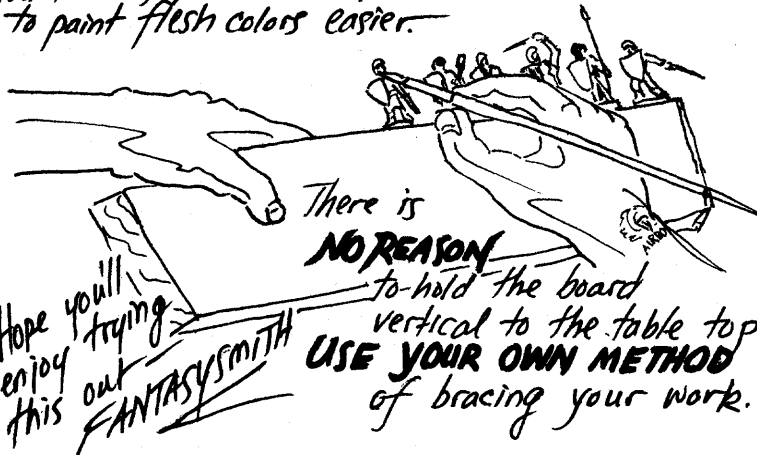 to paint flesh colors easier.
There is
NO REASON
to hold the board
vertical to the table top
USE YOUR OWN METHOD
of bracing your work.
Hope you'll
enjoy trying
this out
FANTASYSMITH